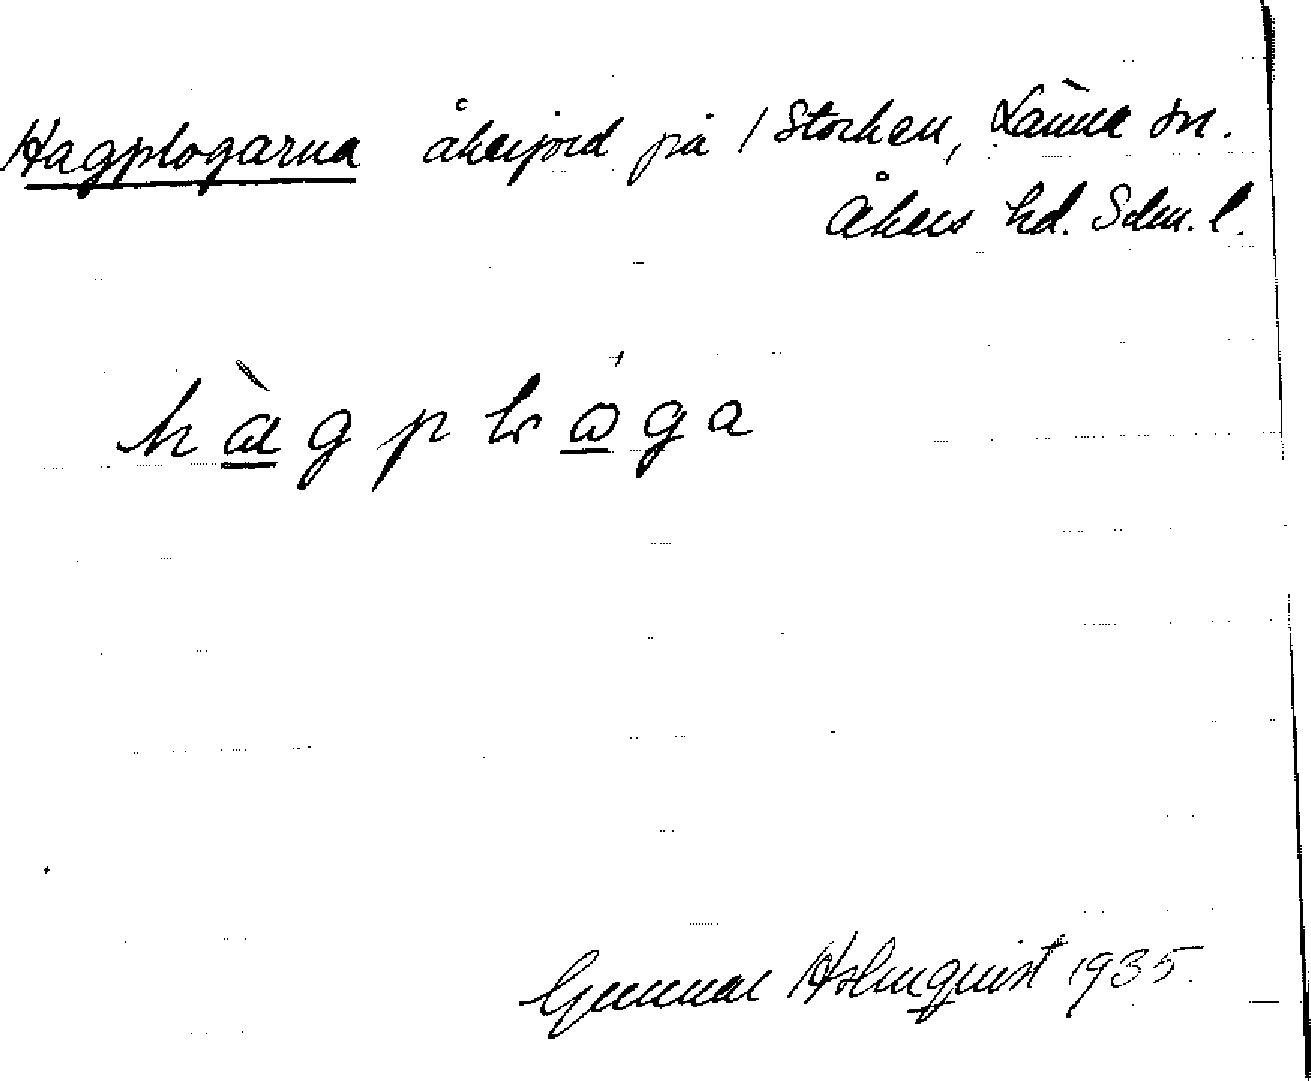 Hagplogarna åkerjord på 1 Stocken, Länna sn.
Åkers hd. Sdm. l.
hàgplóga
Gunnar Holmquist 1935.